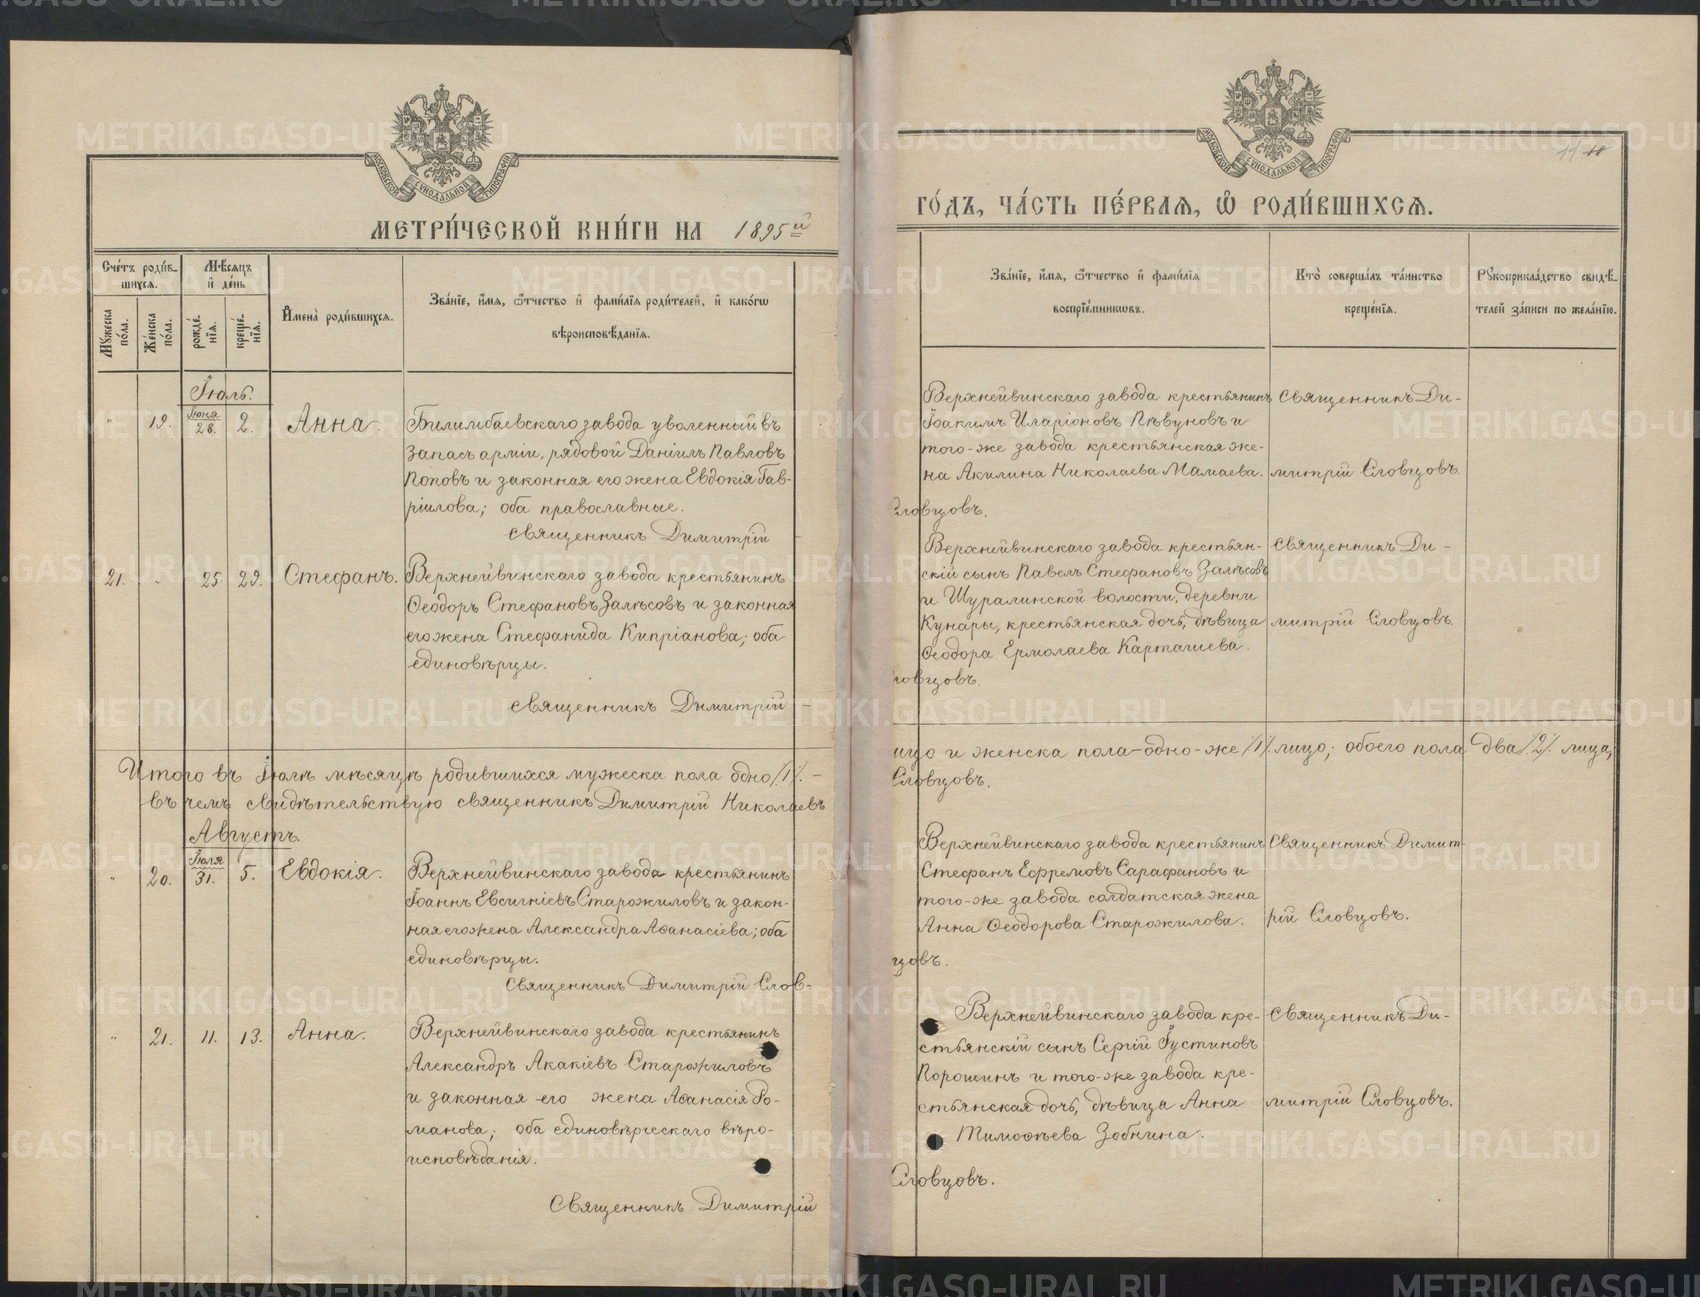 МЕТРИ́ЧЕСКОЙ КНИ́ГИ НА 1895й
Сче́тъ роди́в-
шихсѧ.
Мѣ́сѧцъ
и҆ де́нь
Мꙋ́жеска
по́ла.
Же́нска
по́ла.
рожде́
нїѧ.
креще́
нїѧ.
И҆мена̀ роди́вшихсѧ.
Зва́нїе, и҆́мѧ, ѻ҆́тчество и҆ фами́лїѧ роди́телей, и҆ како́гѡ
вѣроисповѣ́данїѧ.
Іюль.
" 19. Іюня 28. 2. Анна.
Билимбаевскаго завода уволенный въ
запасъ арміи, рядовой Даніилъ Павловъ
Поповъ и законная его жена Евдокія Гав-
ріилова; оба православные.
Священникъ Димитрій
21. " 25. 29. Стефанъ.
Верхнейвинскаго завода крестьянинъ
Ѳеодоръ Стефановъ Залѣсовъ и законная
его жена Стефанида Кипріанова; оба
единовѣрцы.
Священникъ Димитрій
Итого въ Іюлѣ мѣсяцѣ родившихся мужеска пола одно /1/. –
въ чемъ свидѣтельствую священникъ Димитрій Николаевъ
Августъ.
" 20. Іюля 31. 5. Евдокія.
Верхнейвинскаго завода крестьянинъ
Іоаннъ Евсигніевъ Старожиловъ и закон-
ная его жена Александра Аѳанасіева; оба
единовѣрцы.
Священникъ Димитрій Слов-
" 21. 11. 13. Анна.
Верхнейвинскаго завода крестьянинъ
Александръ Акакіевъ Старожиловъ
и законная его жена Аѳанасія Ро-
манова; оба единовѣрческаго вѣро-
исповѣданія.
Священникъ Димитрій
11 10
ГО́ДЪ, ЧА́СТЬ ПЕ́РВАѦ, Ѡ҆ РОДИ́ВШИХСѦ.
Зва́нїе, и҆́мѧ, ѻ҆́тчество и҆ фами́лїѧ
воспрїе́мникѡвъ.
Кто̀ соверша́лъ та́инство
креще́нїѧ.
Рꙋкоприкла́дство свидѣ́-
телей за́писи по жела́нїю.
Верхнейвинскаго завода крестьянинъ
Іоакимъ Иларіоновъ Пѣвуновъ и
того-же завода крестьянская же-
на Акилина Николаева Мамаева.
Священникъ Ди-
митрій Словцовъ.
Словцовъ.
Верхнейвинскаго завода крестьян-
скій сынъ Павелъ Стефановъ Залѣсовъ
и Шуралинской волости, деревни
Кунары, крестьянская дочь, дѣвица
Ѳеодора Ермолаева Карташева.
Священникъ Ди-
митрій Словцовъ.
ловцовъ.
ицо и женска пола – одно-же /1/. лицо; обоего пола два /2/. лица,
Словцовъ.
Верхнейвинскаго завода крестьянинъ
Стефанъ Ефремовъ Сарафановъ и
того-же завода солдатская жена
Анна Ѳеодорова Старожилова.
Священникъ Димит-
рій Словцовъ.
цовъ.
Верхнейвинскаго завода кре-
стьянскій сынъ Сергій Іустиновъ
Порошинъ и того-же завода кре-
стьянская дочь, дѣвица Анна
Тимоѳѣева Зобнина.
Священникъ Ди-
митрій Словцовъ.
Словцовъ.
METRIKI.GASO-URAL.RU